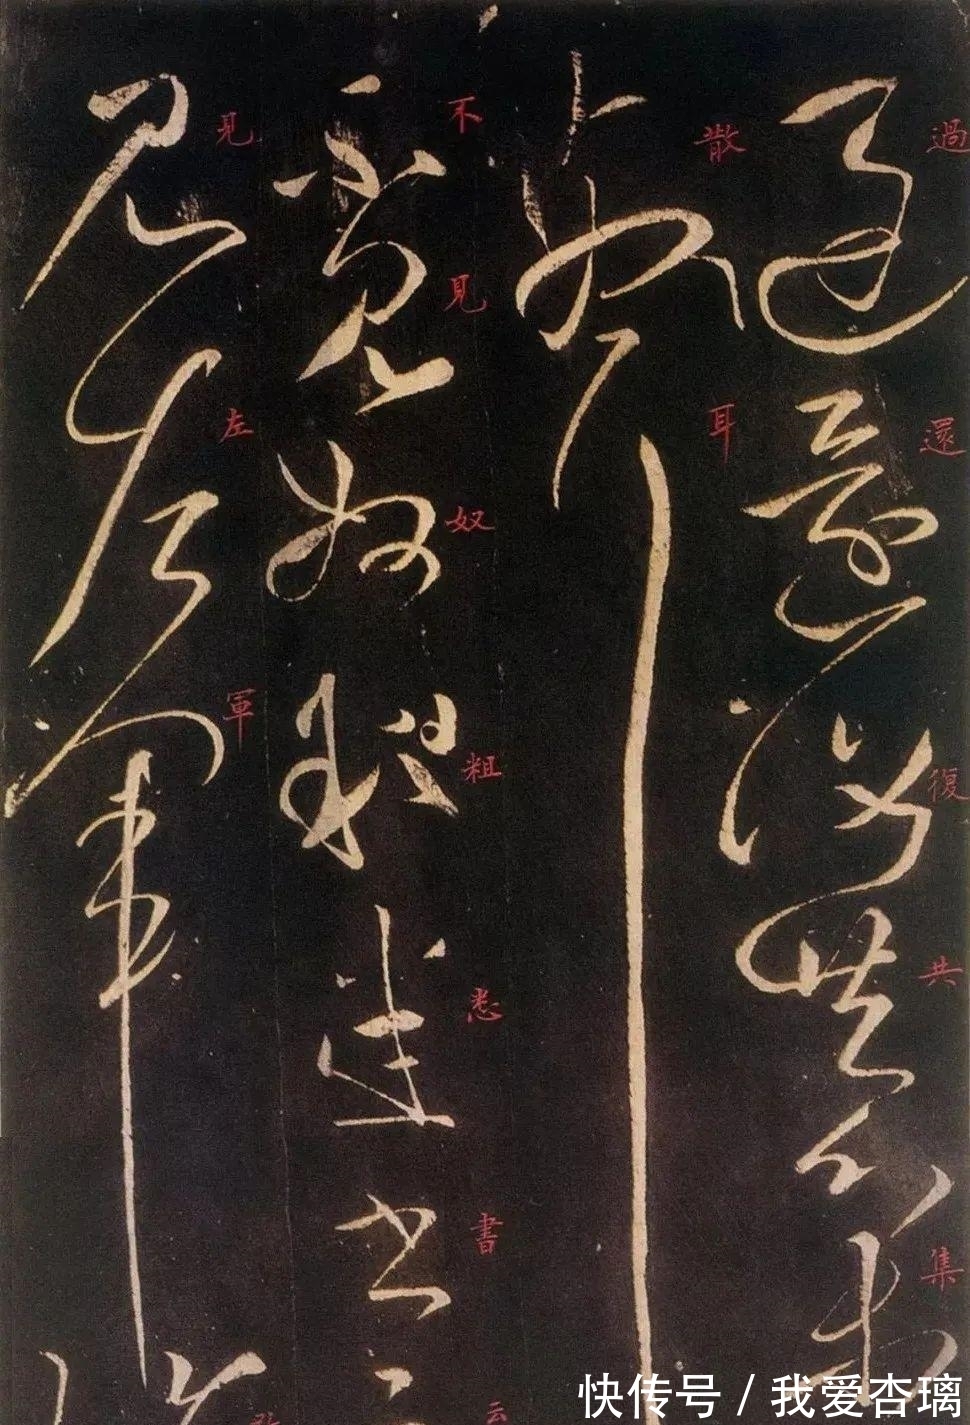 過還復共集
散耳
不見奴粗悉書云
見左軍
快传号 / 我爱杏璃